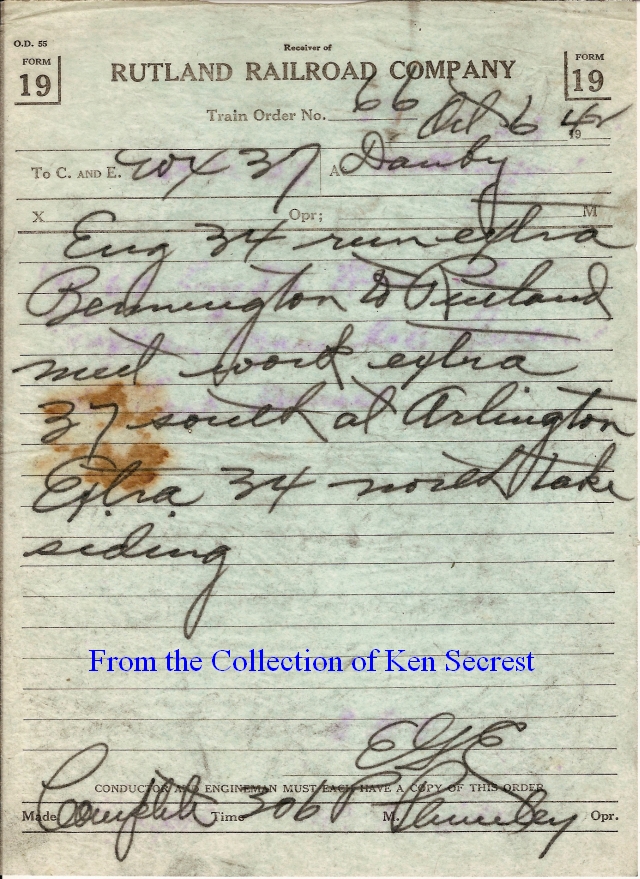 O.D. 55
Receiver of
FORM 19
RUTLAND RAILROAD COMPANY
FORM 19
Train Order No. 66 Oct 6 1942
To C. AND E. WX 37 At Danby
X Opr; M
Eng 34 run extra
Bennington to Rutland
meet work extra
37 south at Arlington
Extra 34 north take
siding
From the Collection of Ken Secrest
CONDUCTOR AND ENGINEMAN MUST EACH HAVE A COPY OF THIS ORDER
Made Complete Time 306 P M. Opr.